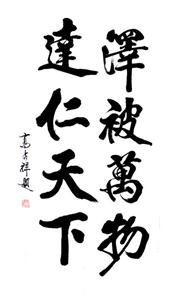 澤被萬物
達仁天下
高占祥題